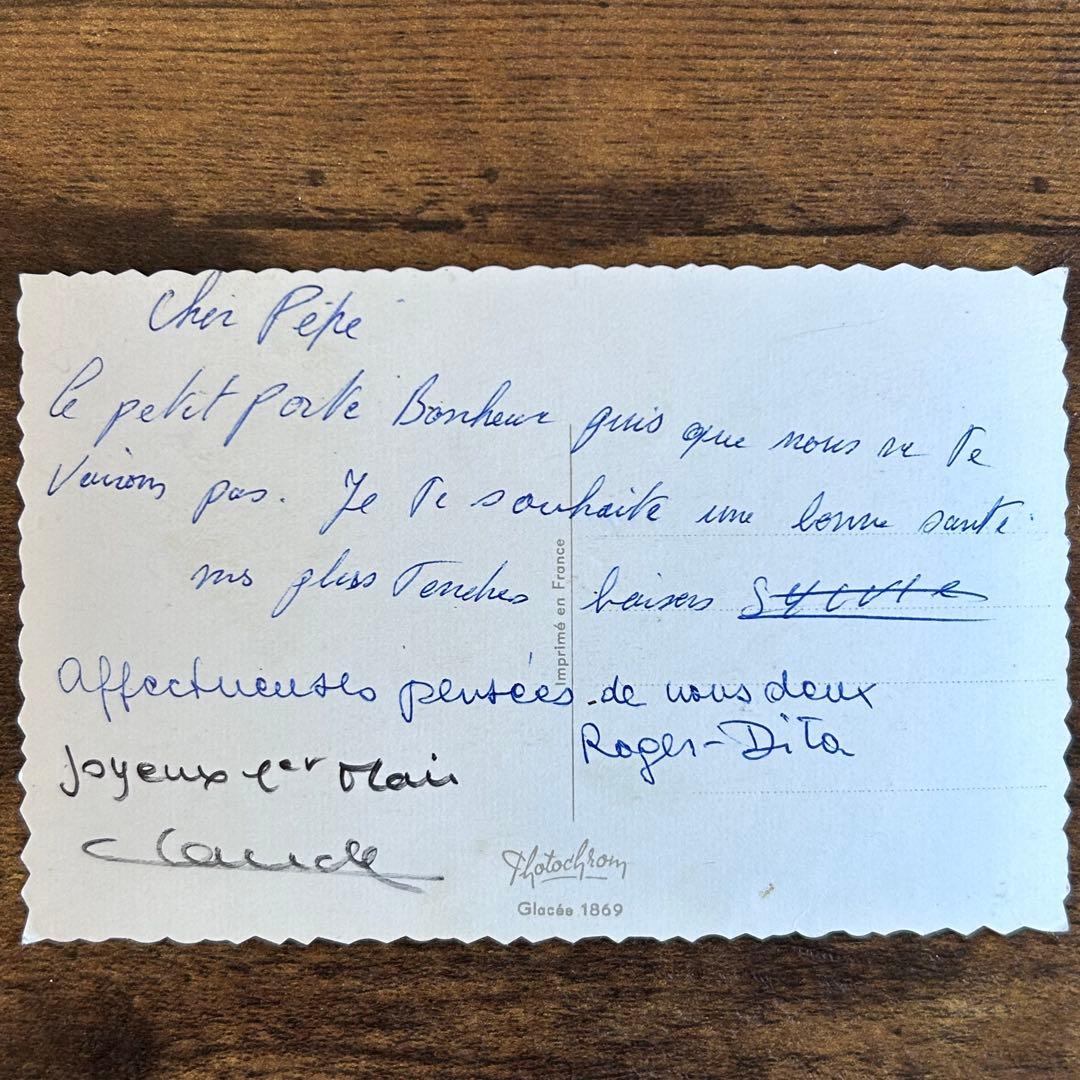 Cher Pépé
le petit porte Bonheur puis que nous ne te
voirons pas. Je te souhaite une bonne santé.
mes plus tendres baisers Sylvie
Affectueuses pensées de nous deux
Roger-Dita
Joyeux 1er Mai
Claude
Imprimé en France
Photochrom
Glacée 1869